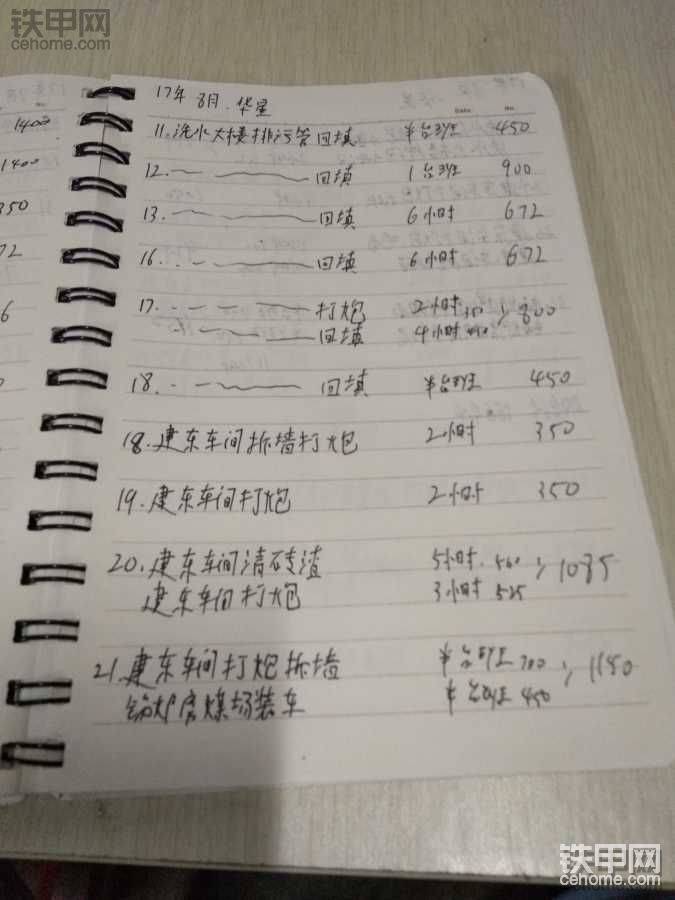 铁甲网
cehome.com
1400
1400
350
72
6
17年 8月. 华星
Date No
11. 洗水大楼排污管回填 半台班 450
12. 〃 回填 1台班 900
13. 〃 回填 6小时 672
16. 〃 回填 6小时 672
17. 〃 打炮 2小时 350 } 800
〃 回填 4小时 450
18. 〃 回填 半台班 450
18. 建东车间拆墙打炮 2小时 350
19. 建东车间打炮 2小时 350
20. 建东车间清砖渣 5小时. 560 } 1085
建东车间打炮 3小时 525
21. 建东车间打炮拆墙 半台班 700 } 1150
锅炉房煤场装车 半台班 450
铁甲网
cehome.com